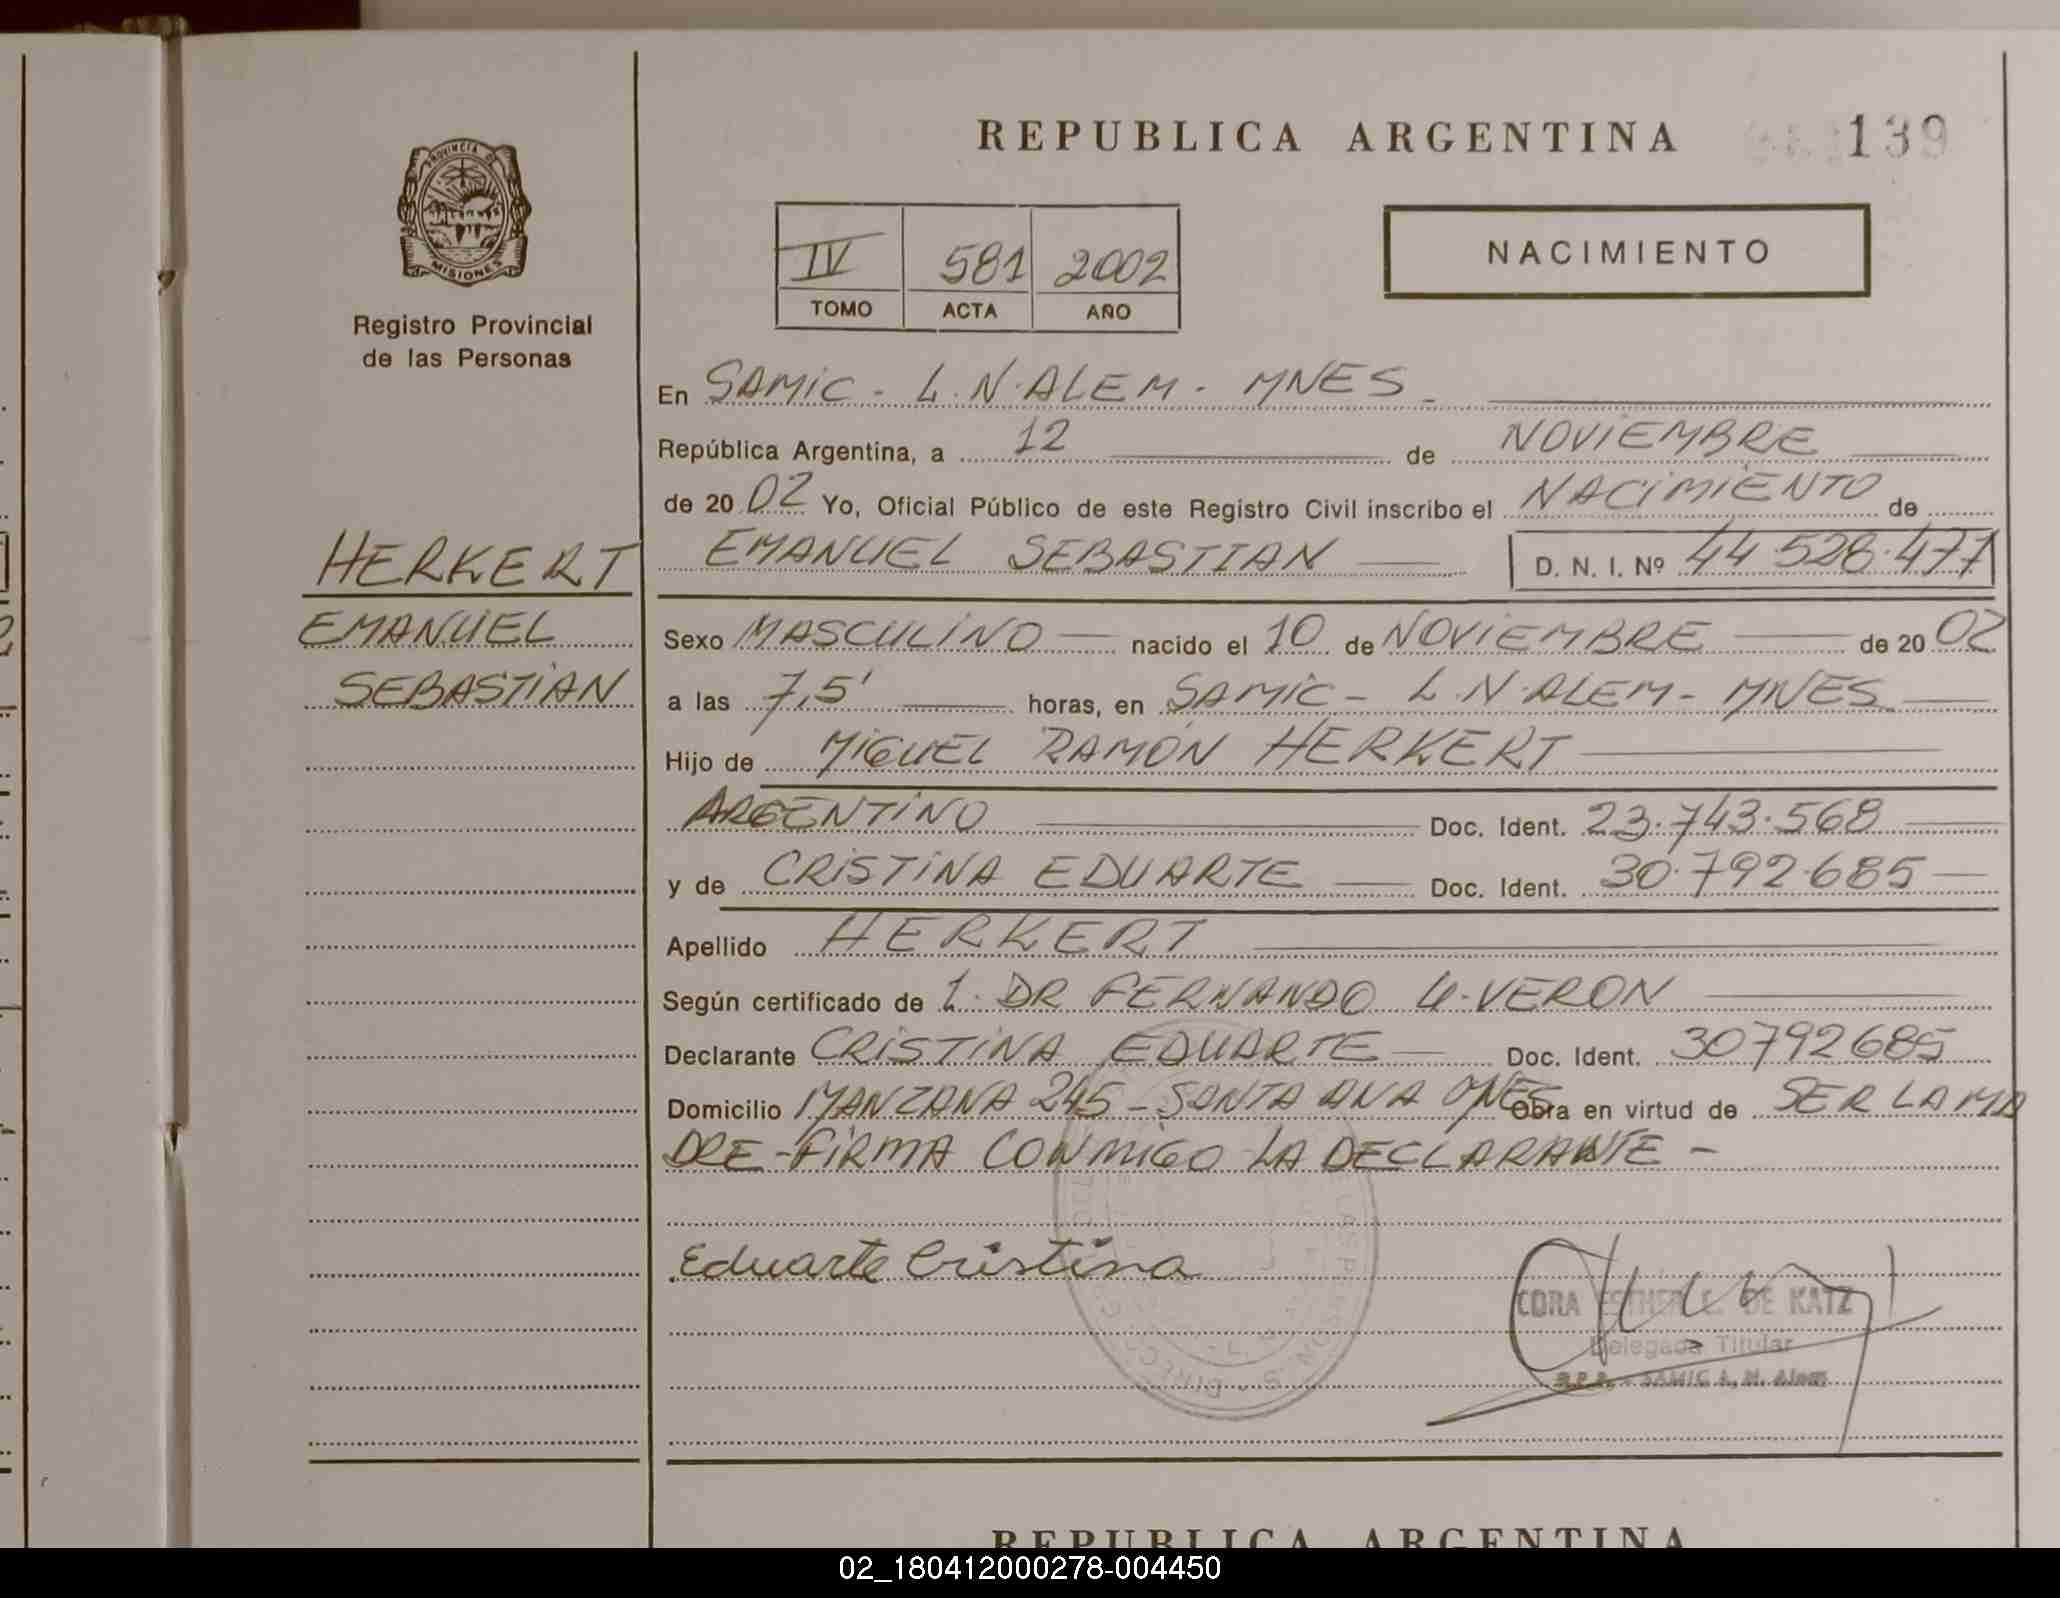 REPUBLICA ARGENTINA
139
PROVINCIA DE
MISIONES
Registro Provincial
de las Personas
IV 581 2002
TOMO ACTA AÑO
NACIMIENTO
En SAMIC - L.N.ALEM - MNES -
República Argentina, a 12 de NOVIEMBRE
de 2002 Yo, Oficial Público de este Registro Civil inscribo el NACIMIENTO de
HERKERT
EMANUEL
SEBASTIAN
EMANUEL SEBASTIAN D. N. I. Nº 44.528.477
Sexo MASCULINO nacido el 10 de NOVIEMBRE de 2002
a las 7,5' horas, en SAMIC - L.N.ALEM - MNES
Hijo de MIGUEL RAMÓN HERKERT
ARGENTINO Doc. Ident. 23.743.568
y de CRISTINA EDUARTE Doc. Ident. 30.792.685
Apellido HERKERT
Según certificado de L. DR FERNANDO VERON
Declarante CRISTINA EDUARTE Doc. Ident. 30792685
Domicilio MANZANA 245 - SANTA ANA MNES Obra en virtud de SER LA MA
DRE - FIRMA CONMIGO LA DECLARANTE -
Eduarte Cristina
CORA ESTHER E. DE KATZ
Delegada Titular
SAMIC L. N. Alem
REPUBLICA ARGENTINA
02_180412000278-004450